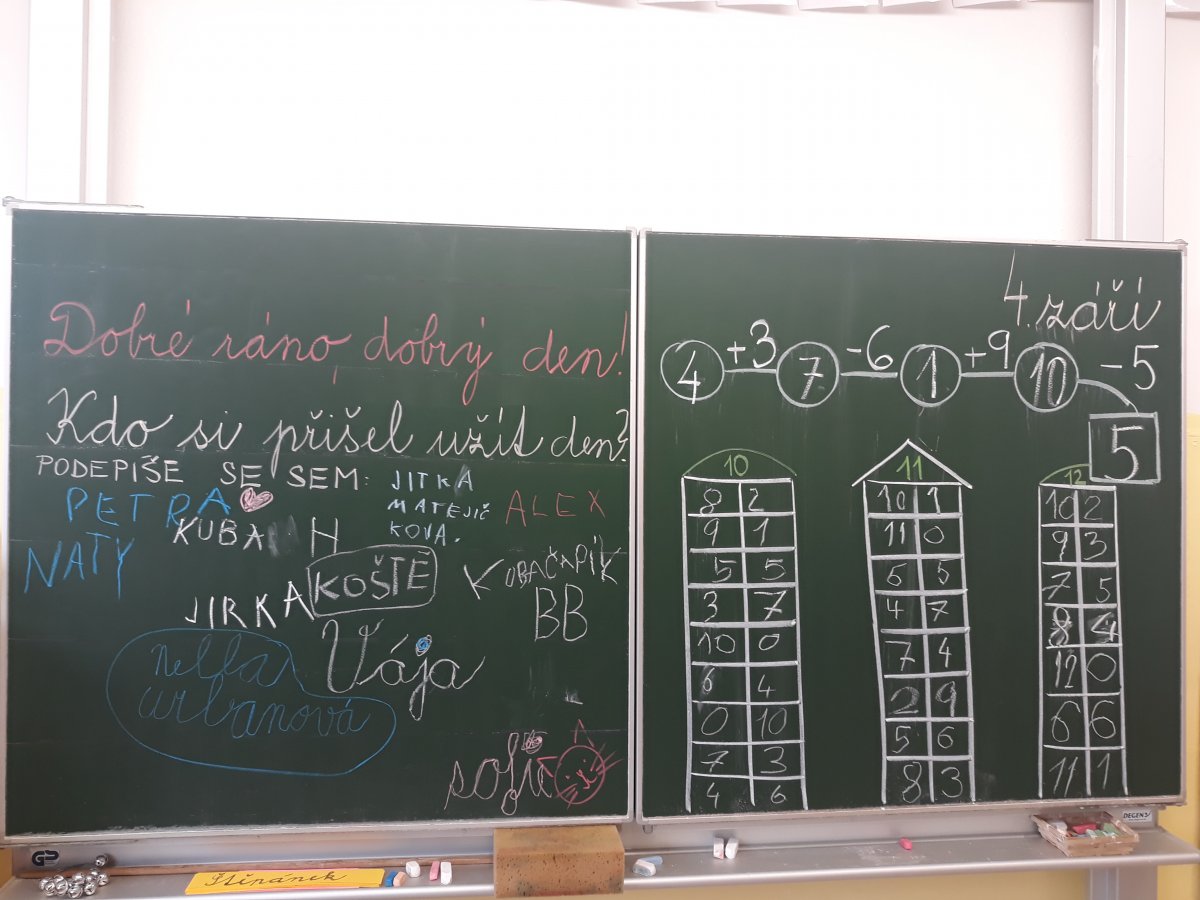 Dobré ráno, dobrý den!
Kdo si přišel užít den?
PODEPIŠE SE SEM:
JITKA
MATEJIČ
KOVA.
PETRA
ALEX
KUBA H
NATY
KOŠTĚ
KUBAČAPIK
BB
JIRKA
Vája
nella
urbanová
sofie
4. září
4 +3 7 -6 1 +9 10 -5
5
10
8 2
9 1
5 5
3 7
10 0
6 4
0 10
7 3
4 6
11
10 1
11 0
6 5
4 7
7 4
2 9
5 6
8 3
12
10 2
9 3
7 5
8 4
12 0
6 6
11 1
DEGEN
Štěpánek